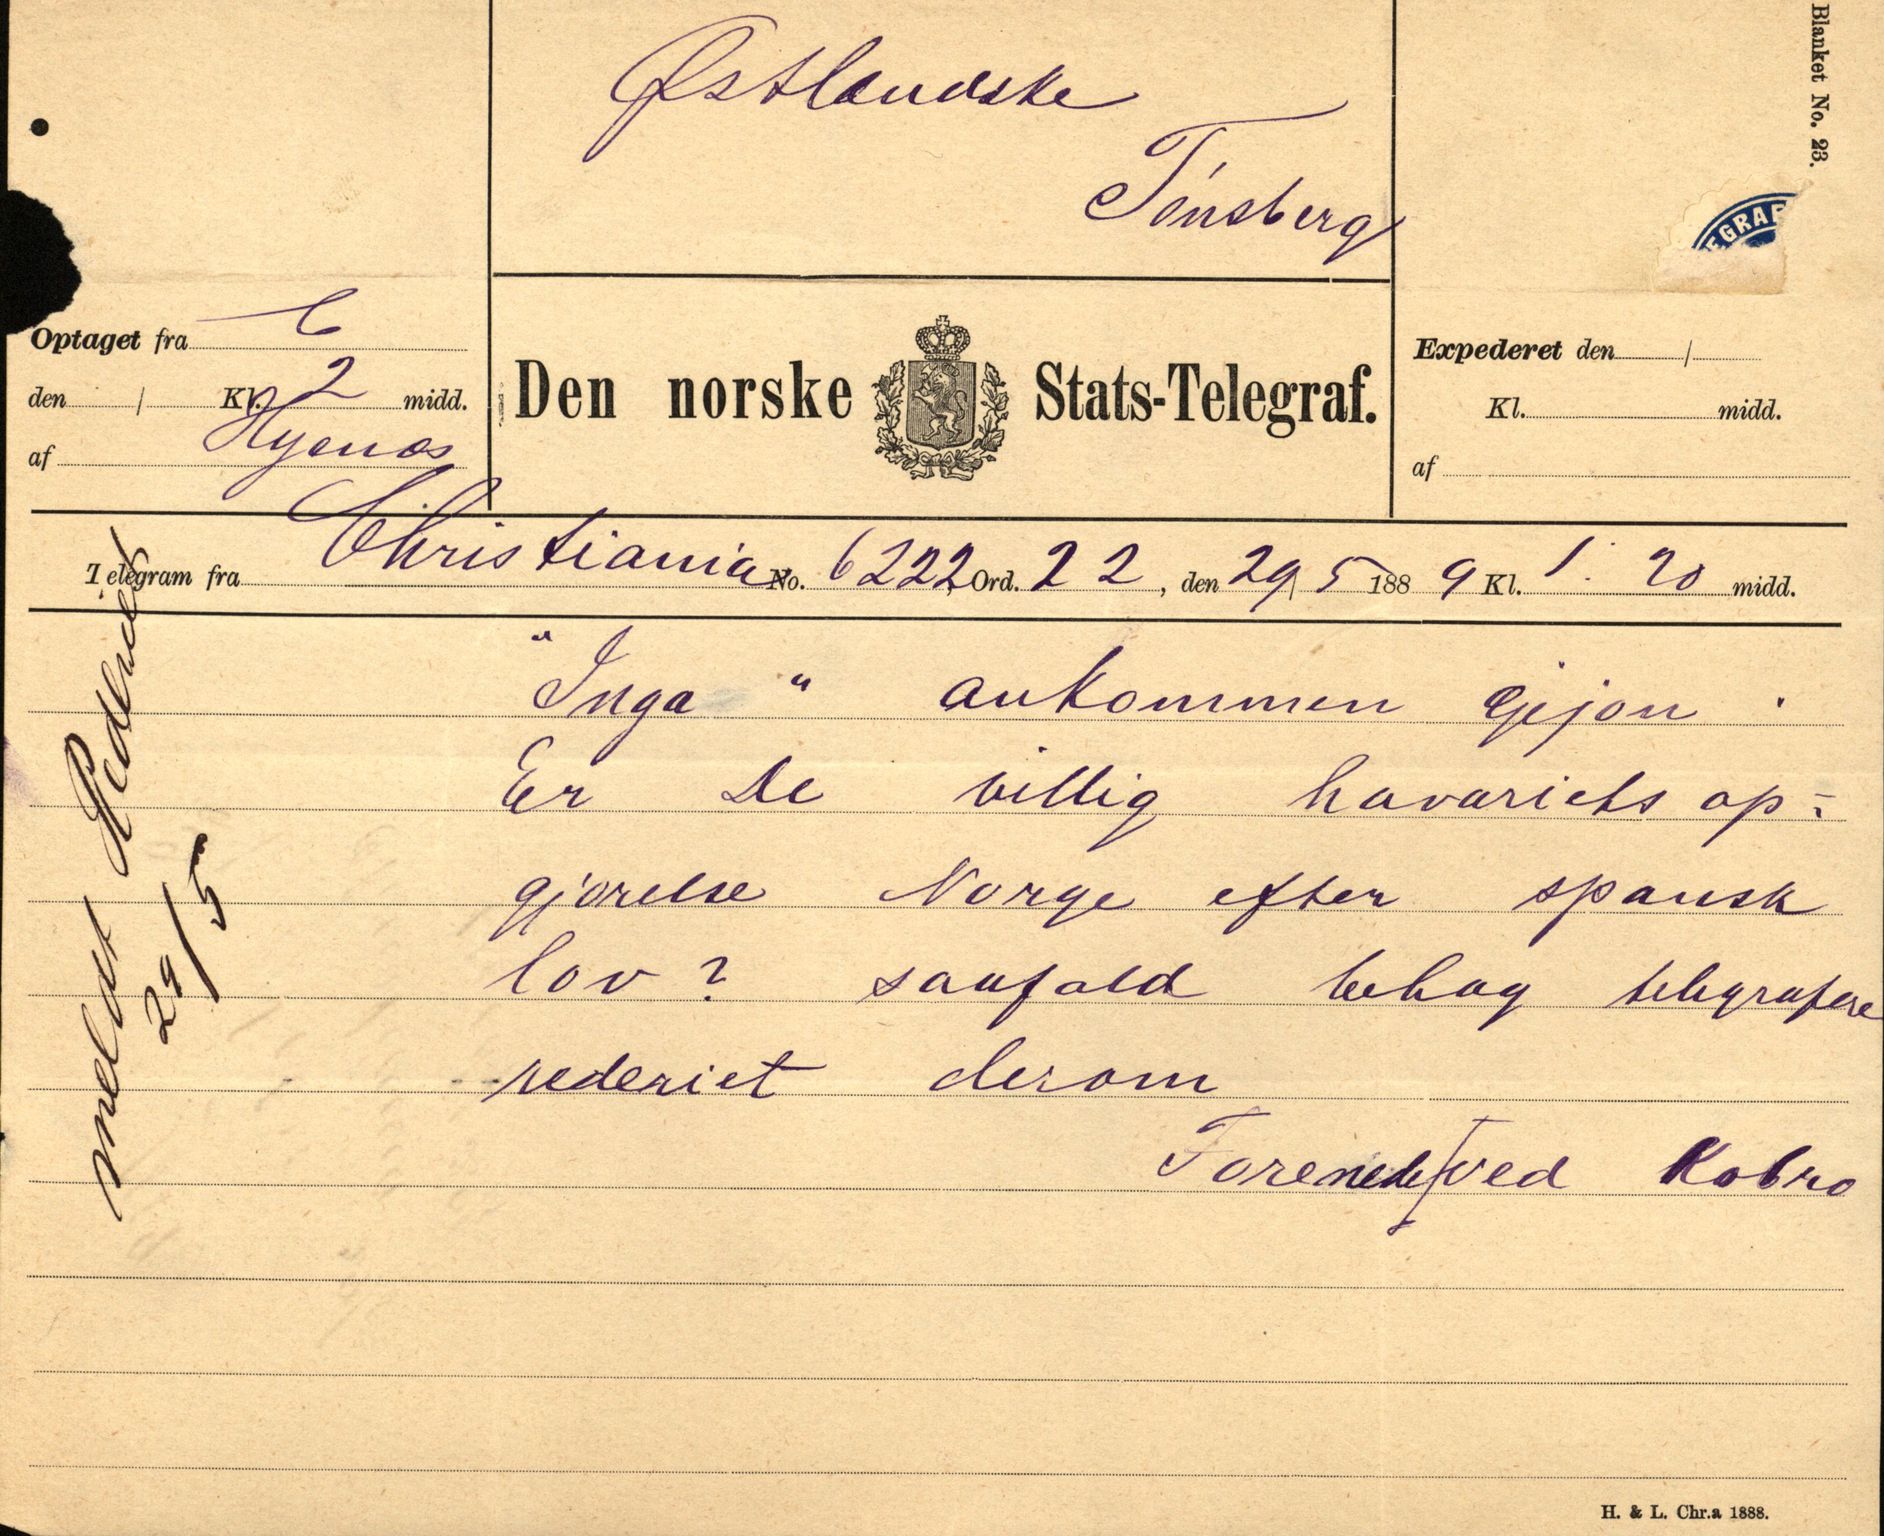 Blanket No. 23.
Østlandske
Tönsberg
EGRAF
Optaget fra C
den / Kl. 2 midd.
af Hyenæs
Den norske Stats-Telegraf.
Expederet den /
Kl. midd.
af
Telegram fra Christiania No. 6222, Ord. 22, den 29/5 1889 Kl. 1.20 midd.
"Inga" ankommen Gijon.
Er De villig havariets op-
gjørelse Norge efter spansk
lov? saafald behag telegrafere
rederiet derom
Forenede/ved Kobro
meldt Rederiet
29/5
H. & L. Chr.a 1888.